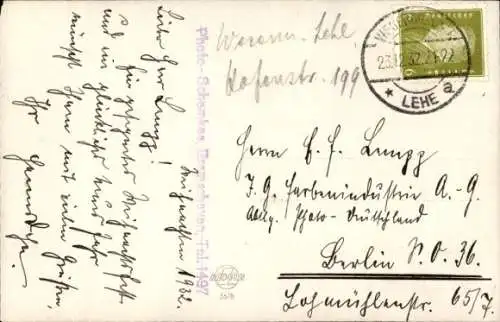 Weihnachten 1932.
Lieber Herr Lumpp!
Ein gesegnetes Weihnachtsfest
und ein glückliches neues Jahr
wünscht Ihnen mit vielen Grüßen,
Ihr
Photo-Schenker, Bremerhaven, Tel. 1497
Weserm.-Lehe,
Hafenstr. 199
23.12.32.
* LEHE a
Herrn E. F. Lumpp
I. G. Farbenindustrie A.-G.
Abtlg. Photo-Deutschland
Berlin S.O. 36.
Lohmühlenstr. 65/7.